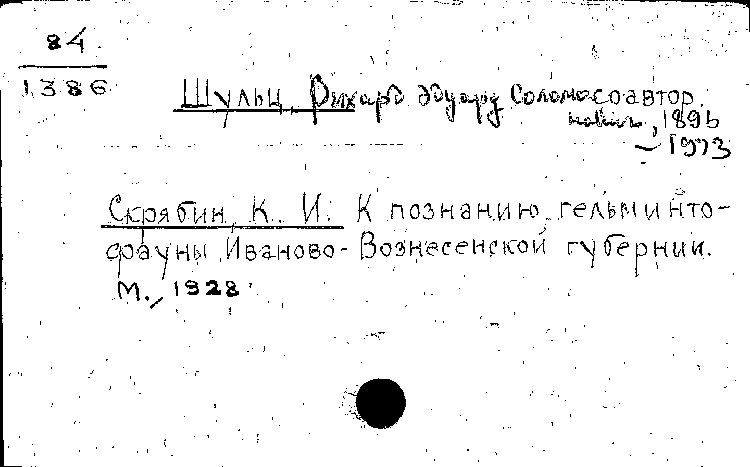 84
1386
Шульц, Рихард Эдуард Соломо соавтор.
нович, 1896
– 1973
Скрябин, К. И. К познанию гельминто-
фауны Иваново-Вознесенской губернии.
М., 1928